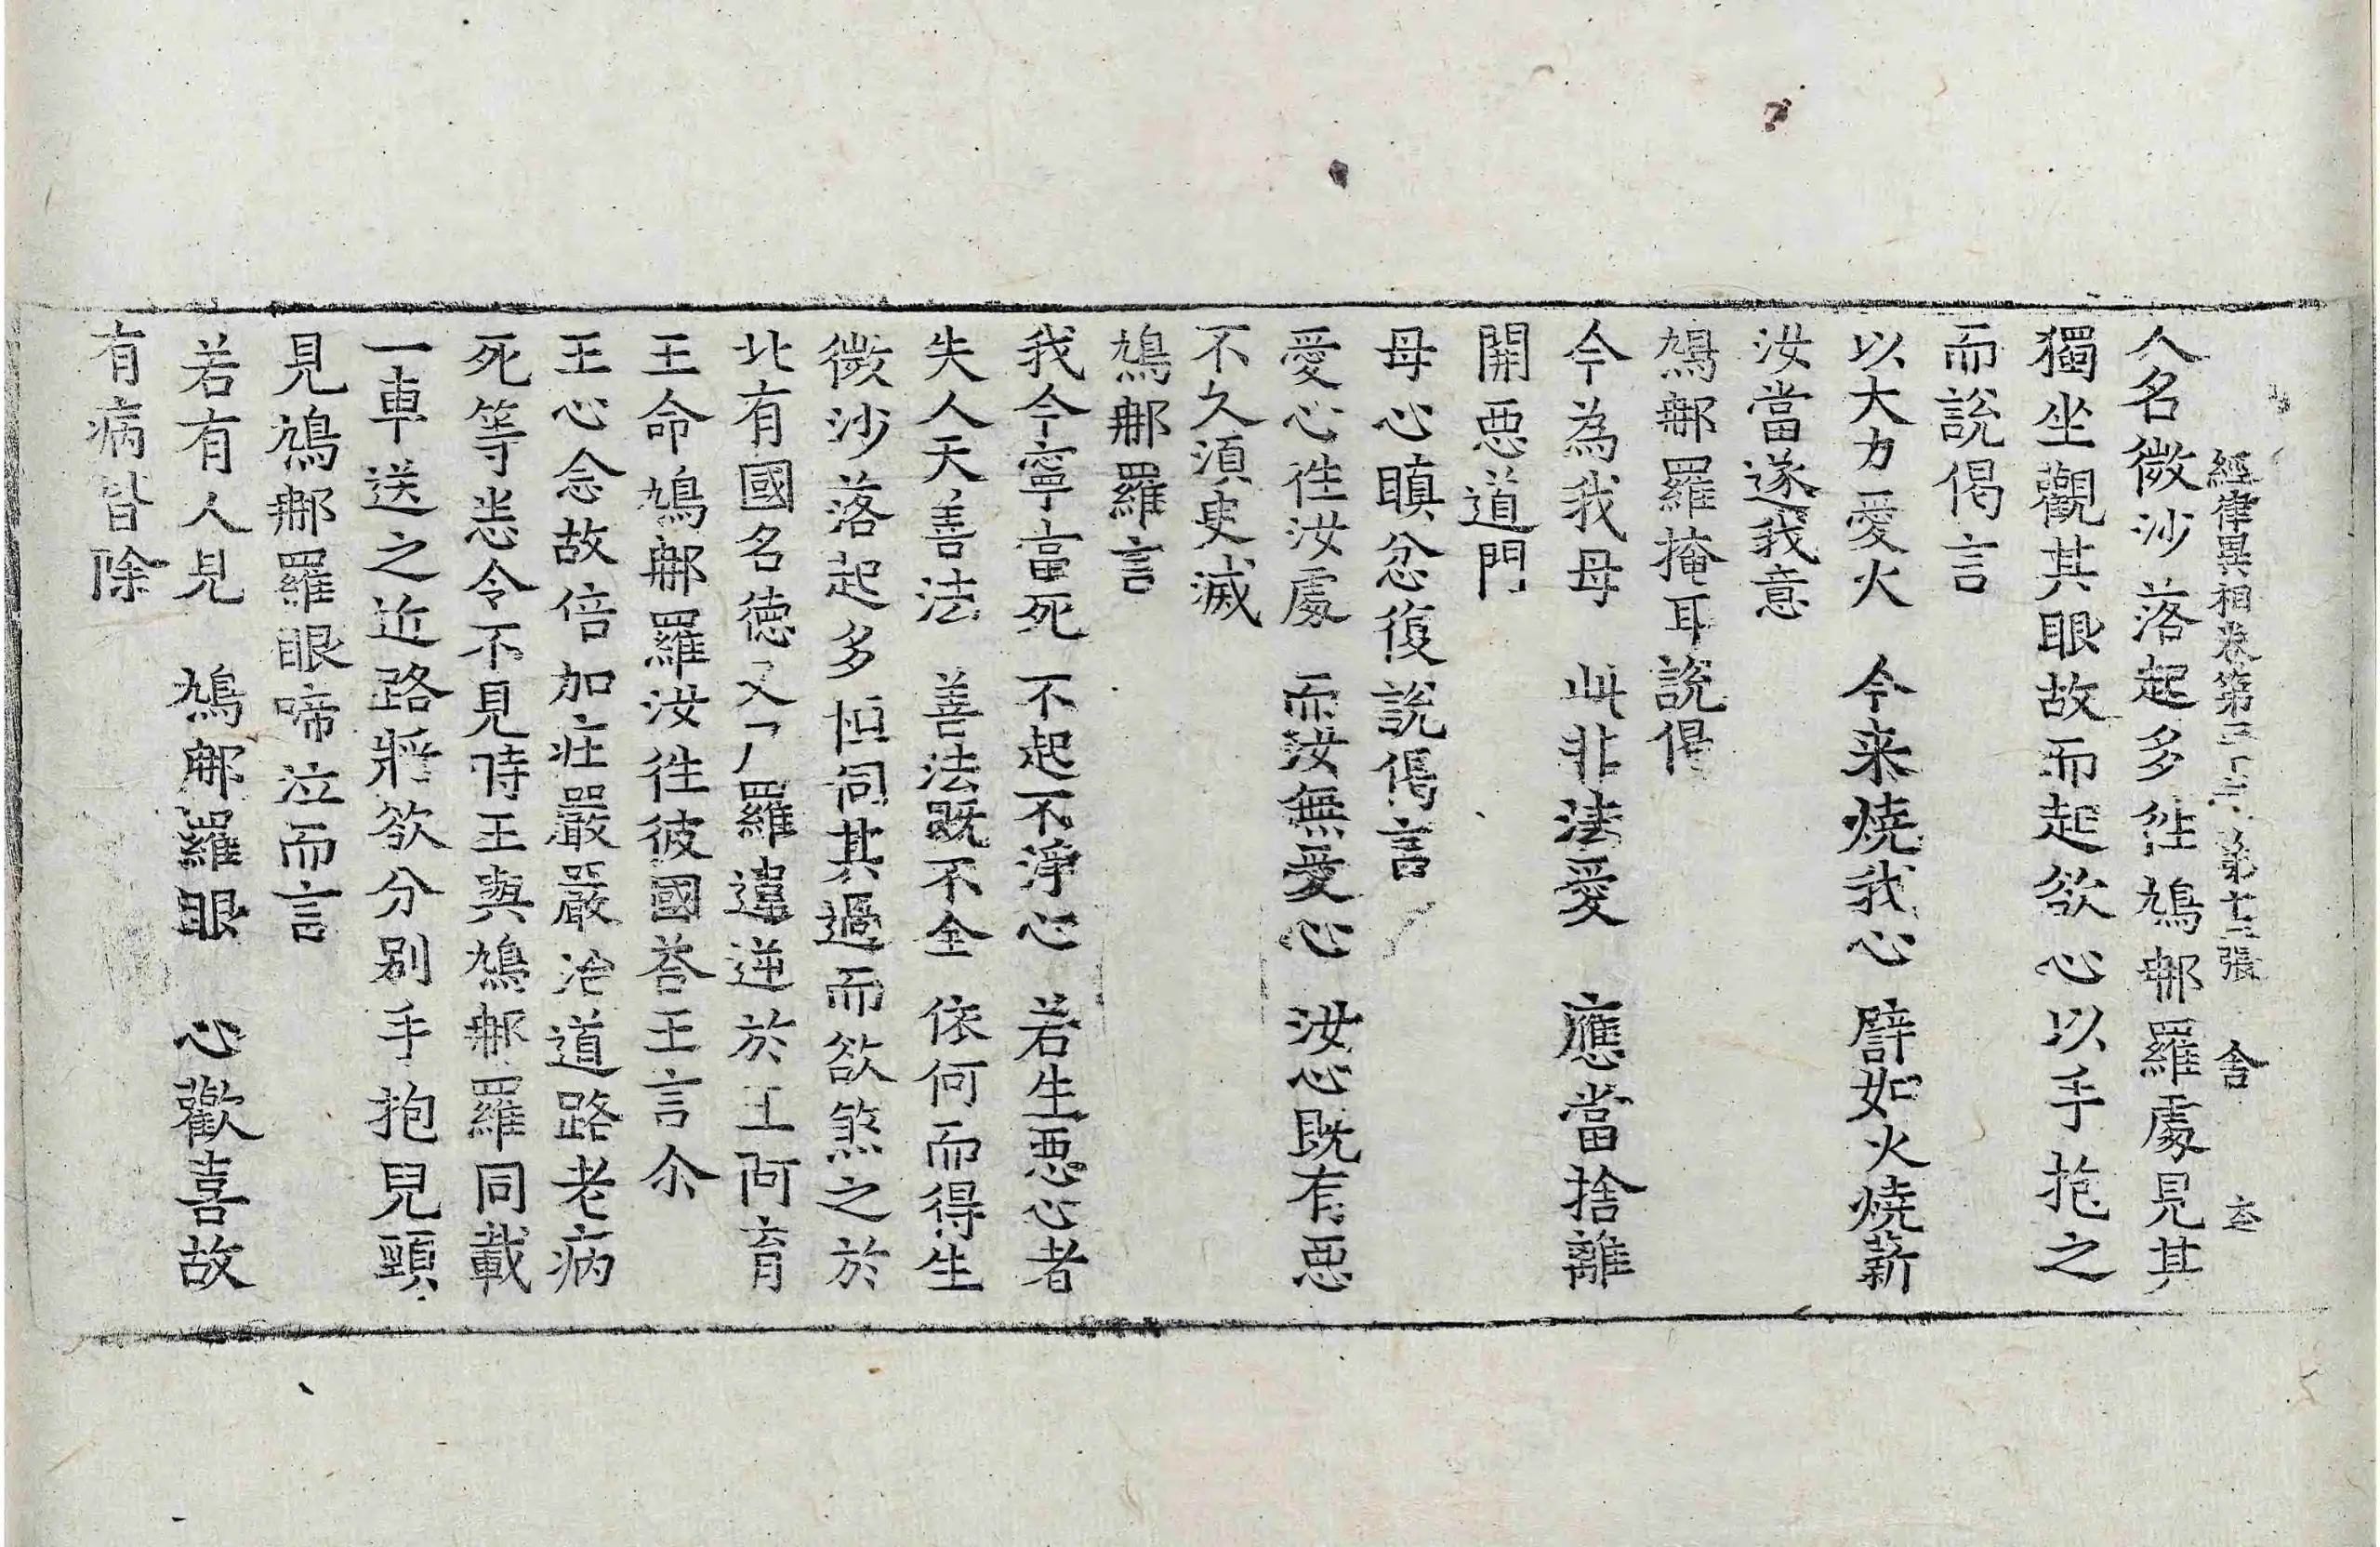 經律異相卷第三十三 第十二張 舍
人名微沙落起多往鳩𨚗羅處見其
獨坐觀其眼故而起欲心以手抱之
而說偈言
以大力愛火 今来燒我心 譬如火燒薪
汝當遂我意
鳩𨚗羅掩耳說偈
今為我母 此非法愛 應當捨離
開惡道門
母心瞋忿復說偈言
愛心往汝處 而汝無愛心 汝心既有惡
不久須臾滅
鳩𨚗羅言
我今寧當死 不起不淨心 若生惡心者
失人天善法 善法既不全 依何而得生
微沙落起多恒伺其過而欲煞之於
北有國名德叉 羅違逆於王阿育
王命鳩𨚗羅汝往彼國荅王言尒
王心念故倍加莊嚴嚴治道路老病
死等悉令不見時王與鳩𨚗羅同載
一車送之近路將欲分别手抱兒頸
見鳩𨚗羅眼啼泣而言
若有人見 鳩𨚗羅眼 心歡喜故
有病皆除